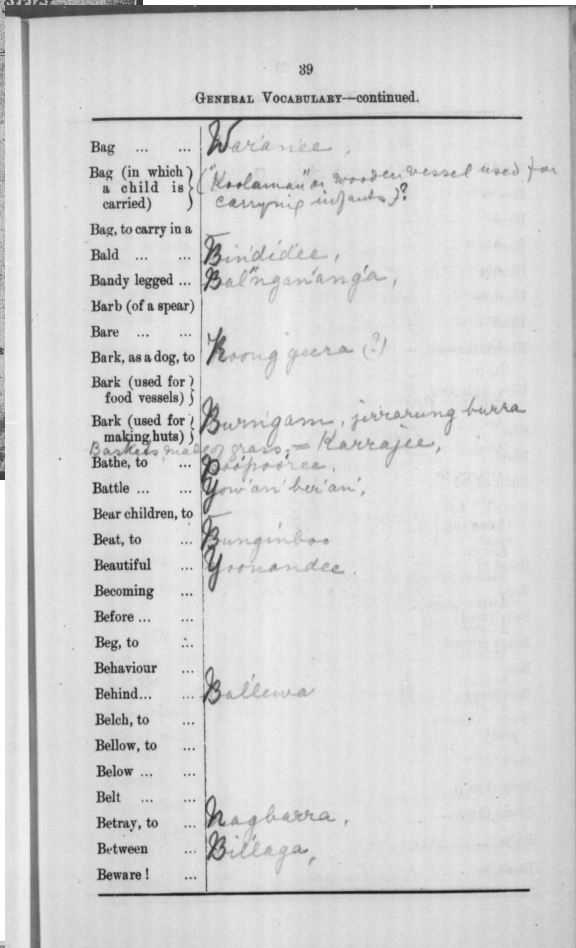 39
GENERAL VOCABULARY—continued.
Bag ... ... War'an'ee,
Bag (in which a child is carried) ("Koolaman" or wooden vessel used for carrying infants)?
Bag, to carry in a
Bald ... ... Bin'did'ee,
Bandy legged ... Bal'ngan'ang'a,
Barb (of a spear)
Bare ... ...
Bark, as a dog, to Koong geera (?)
Bark (used for food vessels)
Bark (used for making huts) Burngam, jirrarung burra
Baskets made of grass, = Karrajee,
Bathe, to ... Poopooree,
Battle ... ... Yow'an'ber'an',
Bear children, to
Beat, to ... Bunginboo
Beautiful ... Yoonandee.
Becoming ...
Before ... ...
Beg, to ...
Behaviour ...
Behind... ... Ballewa
Belch, to ...
Bellow, to ...
Below ... ...
Belt ... ...
Betray, to ... Nagbarra,
Between ... Billaga,
Beware! ...